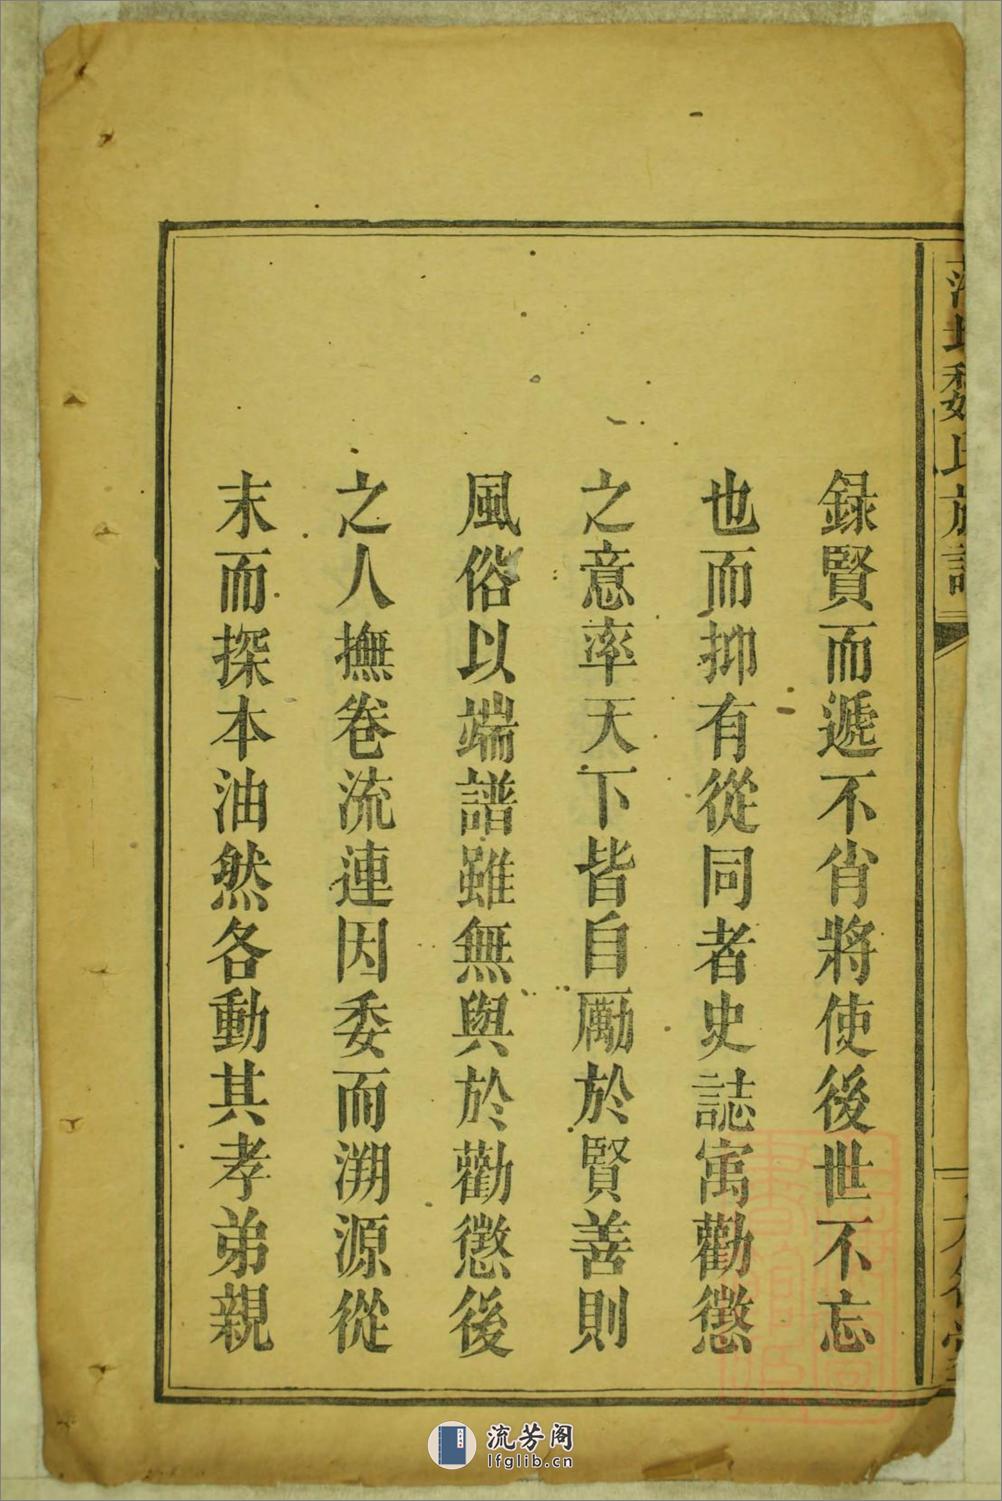 魏氏族譜
錄賢而遞不肖將使後世不忘
也而抑有從同者史誌寓勸懲
之意率天下皆自勵於賢善則
風俗以端譜雖無與於勸懲後
之人撫卷流連因委而溯源從
末而探本油然各動其孝弟親
流芳阁
lfglib.cn